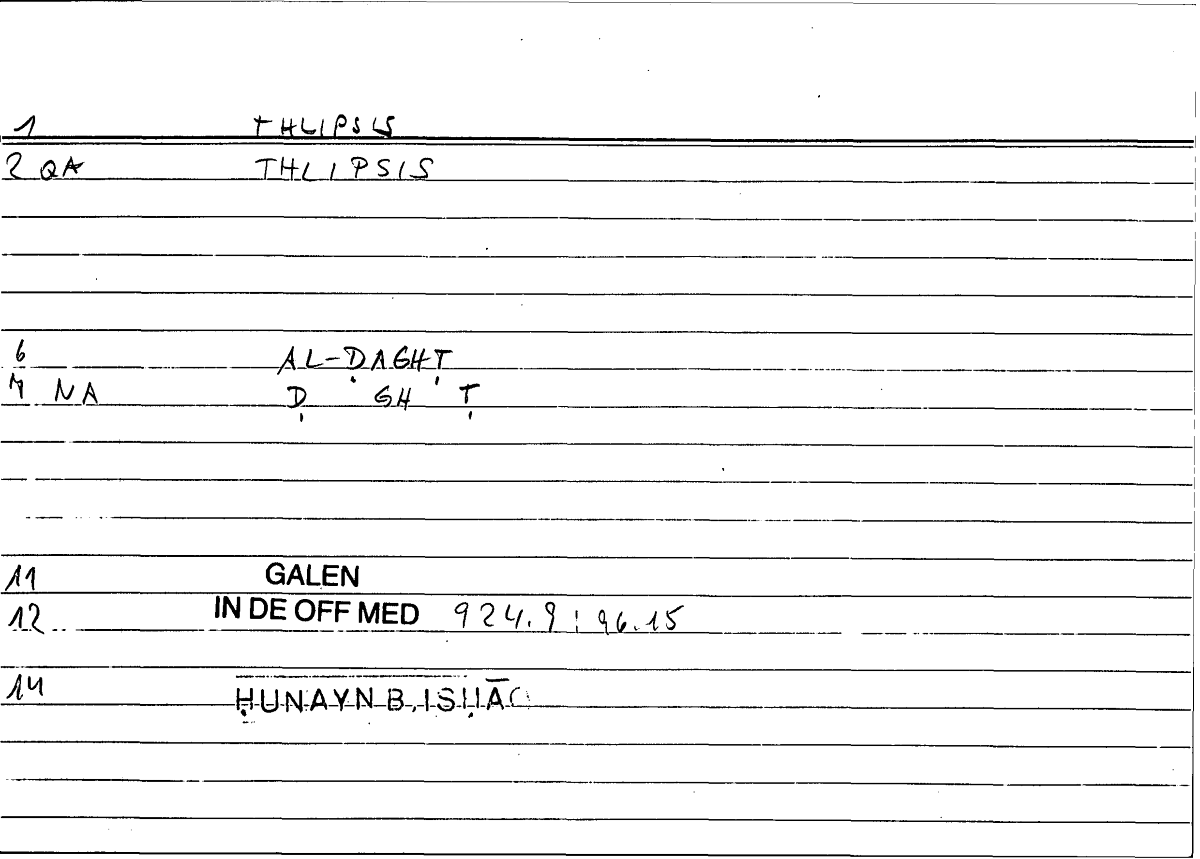 1 THLIPSIS
2 QA THLIPSIS
6 AL-ḌAGHṬ
7 NA Ḍ GH Ṭ
11 GALEN
12 IN DE OFF MED 924.9 : 96.15
14 ḤUNAYN B. ISḤĀQ